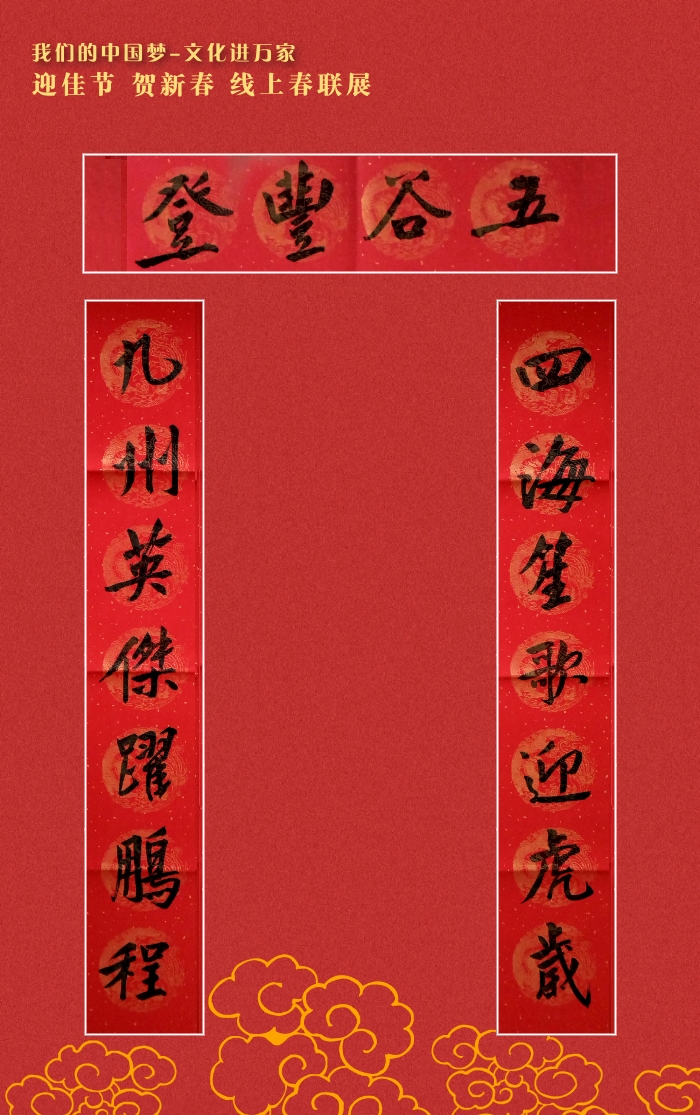 我们的中国梦-文化进万家
迎佳节 贺新春 线上春联展
五谷豐登
四海笙歌迎虎歲
九州英傑躍鵬程